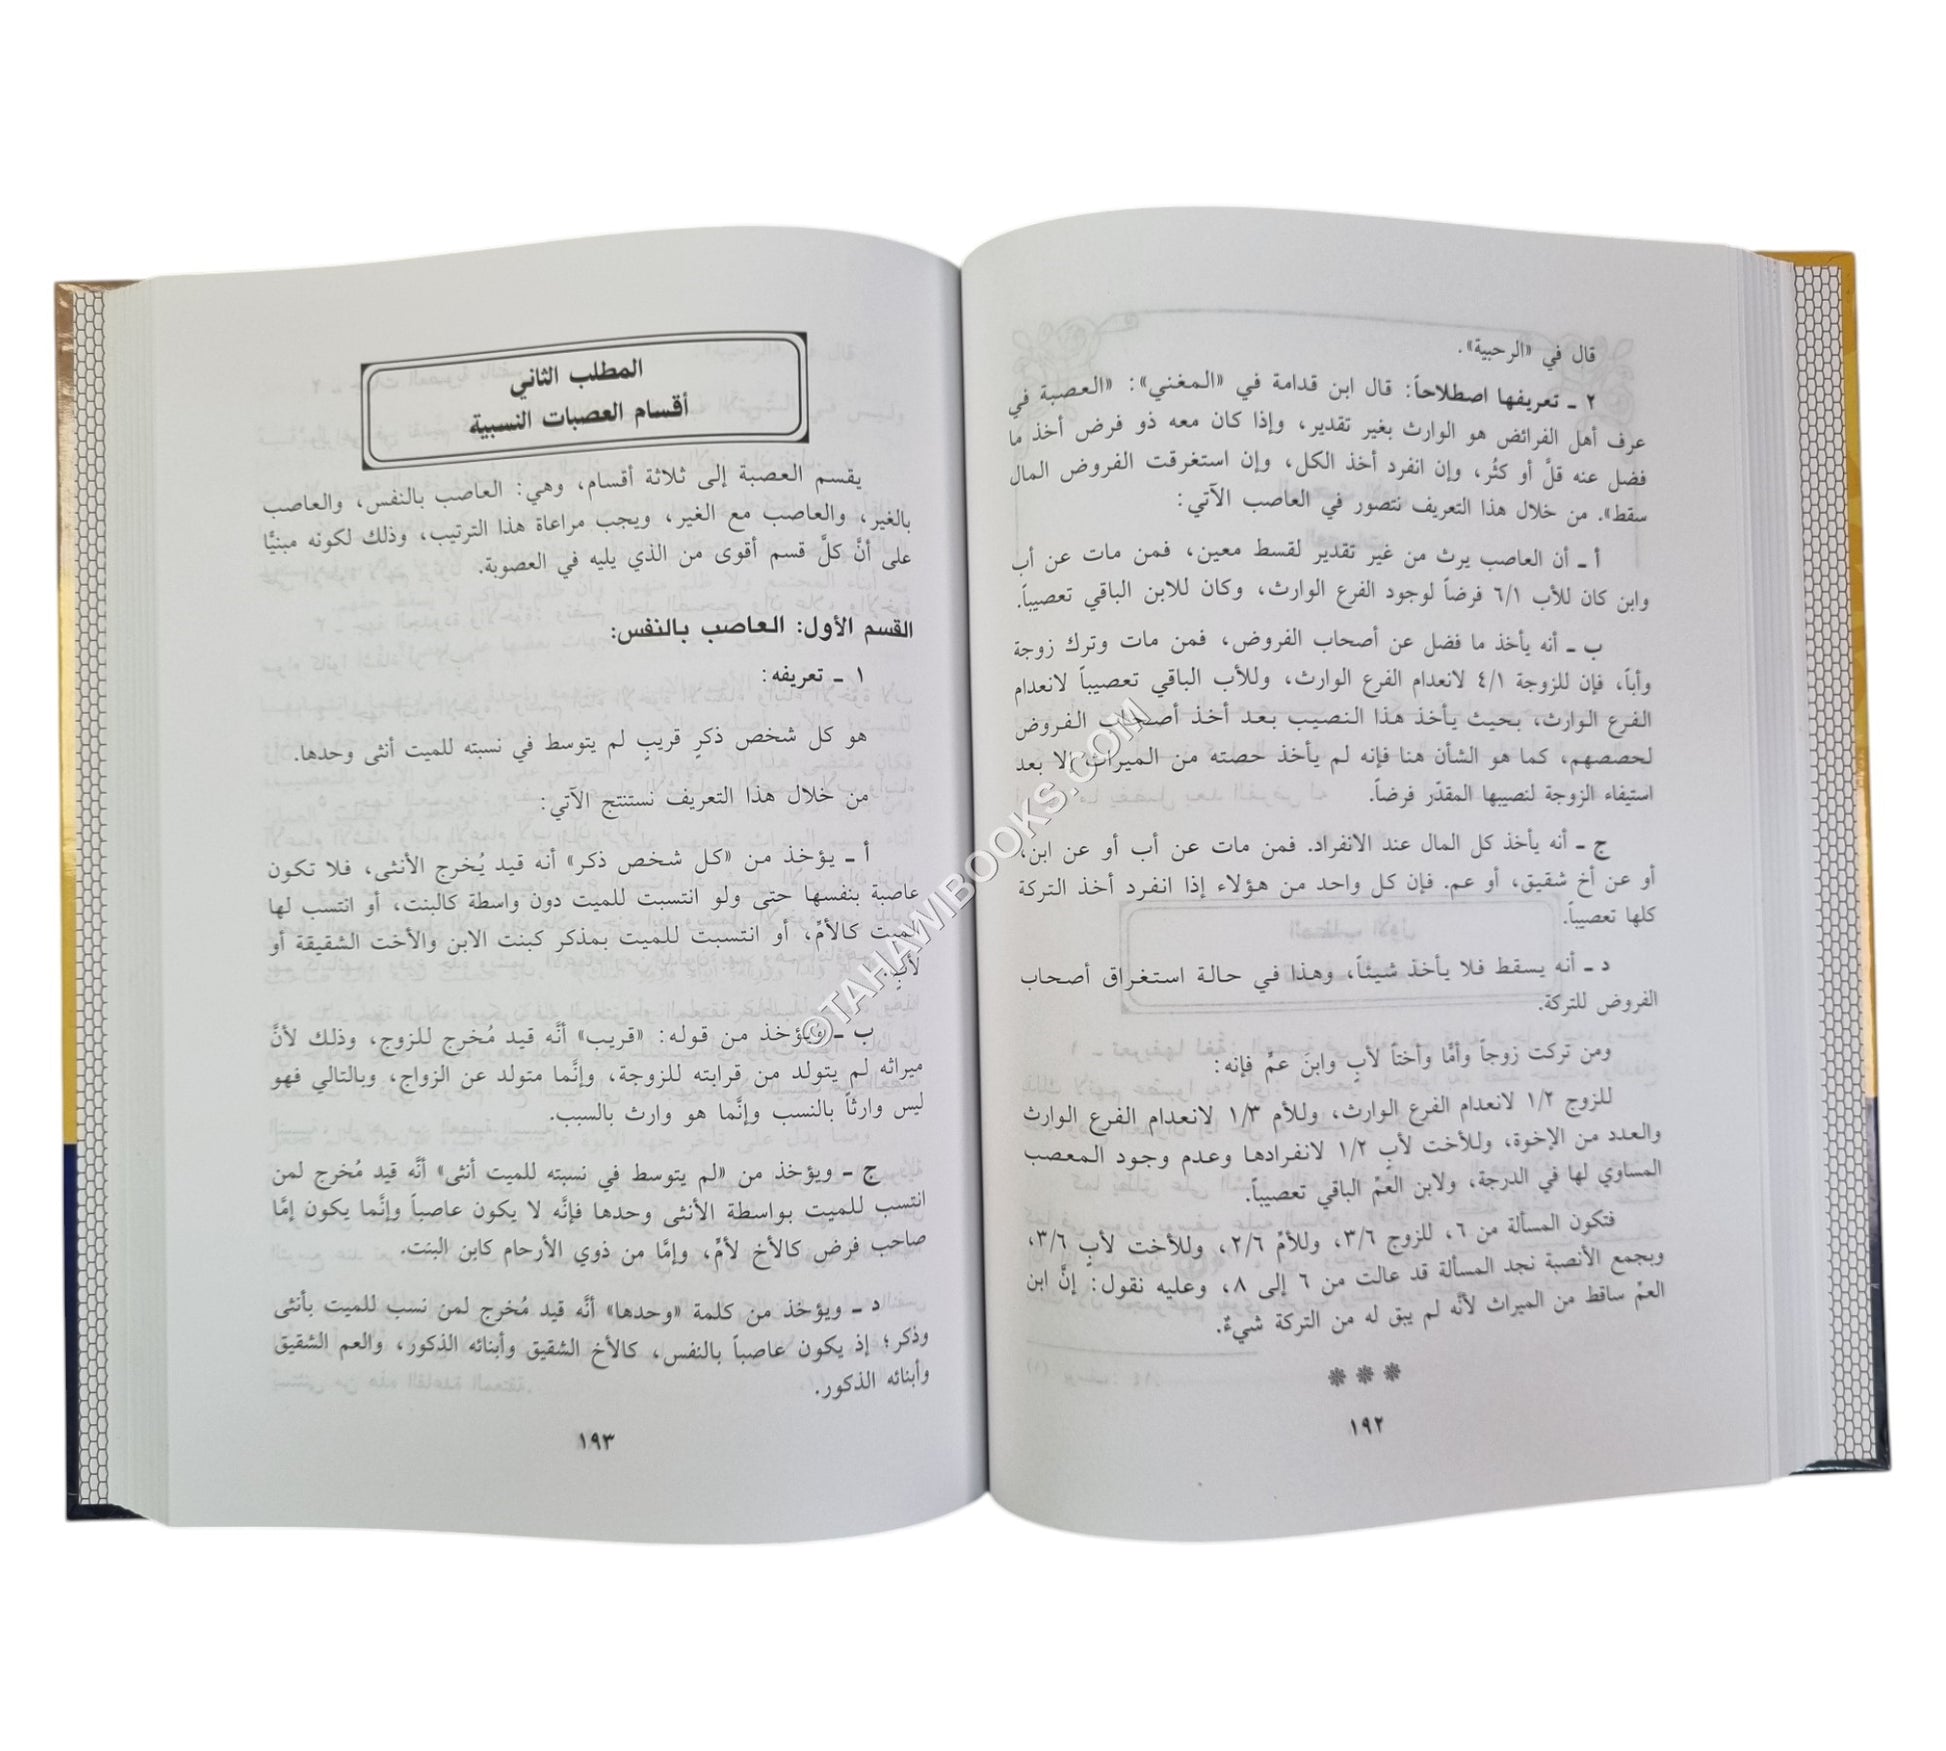 قال في «الرحبية».
٢ ـ تعريفها اصطلاحاً: قال ابن قدامة في «المغني»: «العصبة في
عرف أهل الفرائض هو الوارث بغير تقدير، وإذا كان معه ذو فرض أخذ ما
فضل عنه قلَّ أو كثُر، وإن انفرد أخذ الكل، وإن استغرقت الفروض المال
سقط». من خلال هذا التعريف نتصور في العاصب الآتي:
أ ـ أن العاصب يرث من غير تقدير لقسط معين، فمن مات عن أب
وابن كان للأب ٦/١ فرضاً لوجود الفرع الوارث، وكان للابن الباقي تعصيباً.
ب ـ أنه يأخذ ما فضل عن أصحاب الفروض، فمن مات وترك زوجة
وأباً، فإن للزوجة ٤/١ لانعدام الفرع الوارث، وللأب الباقي تعصيباً لانعدام
الفرع الوارث، بحيث يأخذ هذا النصيب بعد أخذ أصحاب الفروض
لحصصهم، كما هو الشأن هنا فإنه لم يأخذ حصته من الميراث إلا بعد
استيفاء الزوجة لنصيبها المقدّر فرضاً.
ج ـ أنه يأخذ كل المال عند الانفراد. فمن مات عن أب أو عن ابن،
أو عن أخ شقيق، أو عم. فإن كل واحد من هؤلاء إذا انفرد أخذ التركة
كلها تعصيباً.
د ـ أنه يسقط فلا يأخذ شيئاً، وهذا في حالة استغراق أصحاب
الفروض للتركة.
ومن تركت زوجاً وأمًّا وأختاً لأبٍ وابنَ عمٍّ فإنه:
للزوج ١/٢ لانعدام الفرع الوارث، وللأم ١/٣ لانعدام الفرع الوارث
والعدد من الإخوة، وللأخت لأبٍ ١/٢ لانفرادها وعدم وجود المعصب
المساوي لها في الدرجة، ولابن العمّ الباقي تعصيباً.
فتكون المسألة من ٦، للزوج ٣/٦، وللأمّ ٢/٦، وللأخت لأبٍ ٣/٦،
وبجمع الأنصبة نجد المسألة قد عالت من ٦ إلى ٨، وعليه نقول: إنَّ ابن
العمّ ساقط من الميراث لأنَّه لم يبق له من التركة شيءٌ.
١٩٢
المطلب الثاني
أقسام العصبات النسبية
يقسم العصبة إلى ثلاثة أقسام، وهي: العاصب بالنفس، والعاصب
بالغير، والعاصب مع الغير، ويجب مراعاة هذا الترتيب، وذلك لكونه مبنيًّا
على أنَّ كلَّ قسم أقوى من الذي يليه في العصوبة.
القسم الأول: العاصب بالنفس:
١ ـ تعريفه:
هو كل شخص ذكرٍ قريبٍ لم يتوسط في نسبته للميت أنثى وحدها.
من خلال هذا التعريف نستنتج الآتي:
أ ـ يؤخذ من «كل شخص ذكر» أنه قيد يُخرج الأنثى، فلا تكون
عاصبة بنفسها حتى ولو انتسبت للميت دون واسطة كالبنت، أو انتسب لها
الميت كالأمّ، أو انتسبت للميت بمذكر كبنت الابن والأخت الشقيقة أو
لأبٍ.
ب ـ ويؤخذ من قوله: «قريب» أنَّه قيد مُخرج للزوج، وذلك لأنَّ
ميراثه لم يتولد من قرابته للزوجة، وإنَّما متولد عن الزواج، وبالتالي فهو
ليس وارثاً بالنسب وإنَّما هو وارث بالسبب.
ج ـ ويؤخذ من «لم يتوسط في نسبته للميت أنثى» أنَّه قيد مُخرج لمن
انتسب للميت بواسطة الأنثى وحدها فإنَّه لا يكون عاصباً وإنَّما يكون إمَّا
صاحب فرض كالأخ لأمٍّ، وإمَّا من ذوي الأرحام كابن البنت.
د ـ ويؤخذ من كلمة «وحدها» أنَّه قيد مُخرج لمن نسب للميت بأنثى
وذكر؛ إذ يكون عاصباً بالنفس، كالأخ الشقيق وأبنائه الذكور، والعم الشقيق
وأبنائه الذكور.
١٩٣
©TAHAWIBOOKS.COM